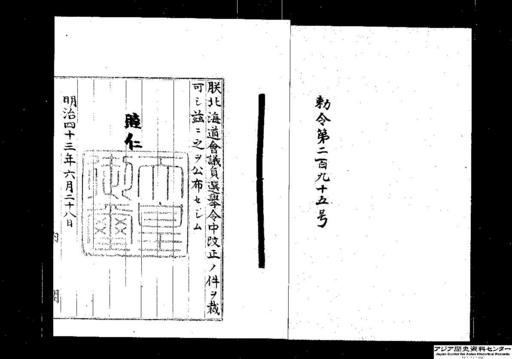 勅令第二百九十五号
朕北海道會議員選擧令中改正ノ件ヲ裁
可シ茲ニ之ヲ公布セシム
睦仁
天皇御璽
明治四十三年六月二十八日
内閣
アジア歴史資料センター
Japan Center for Asian Historical Records